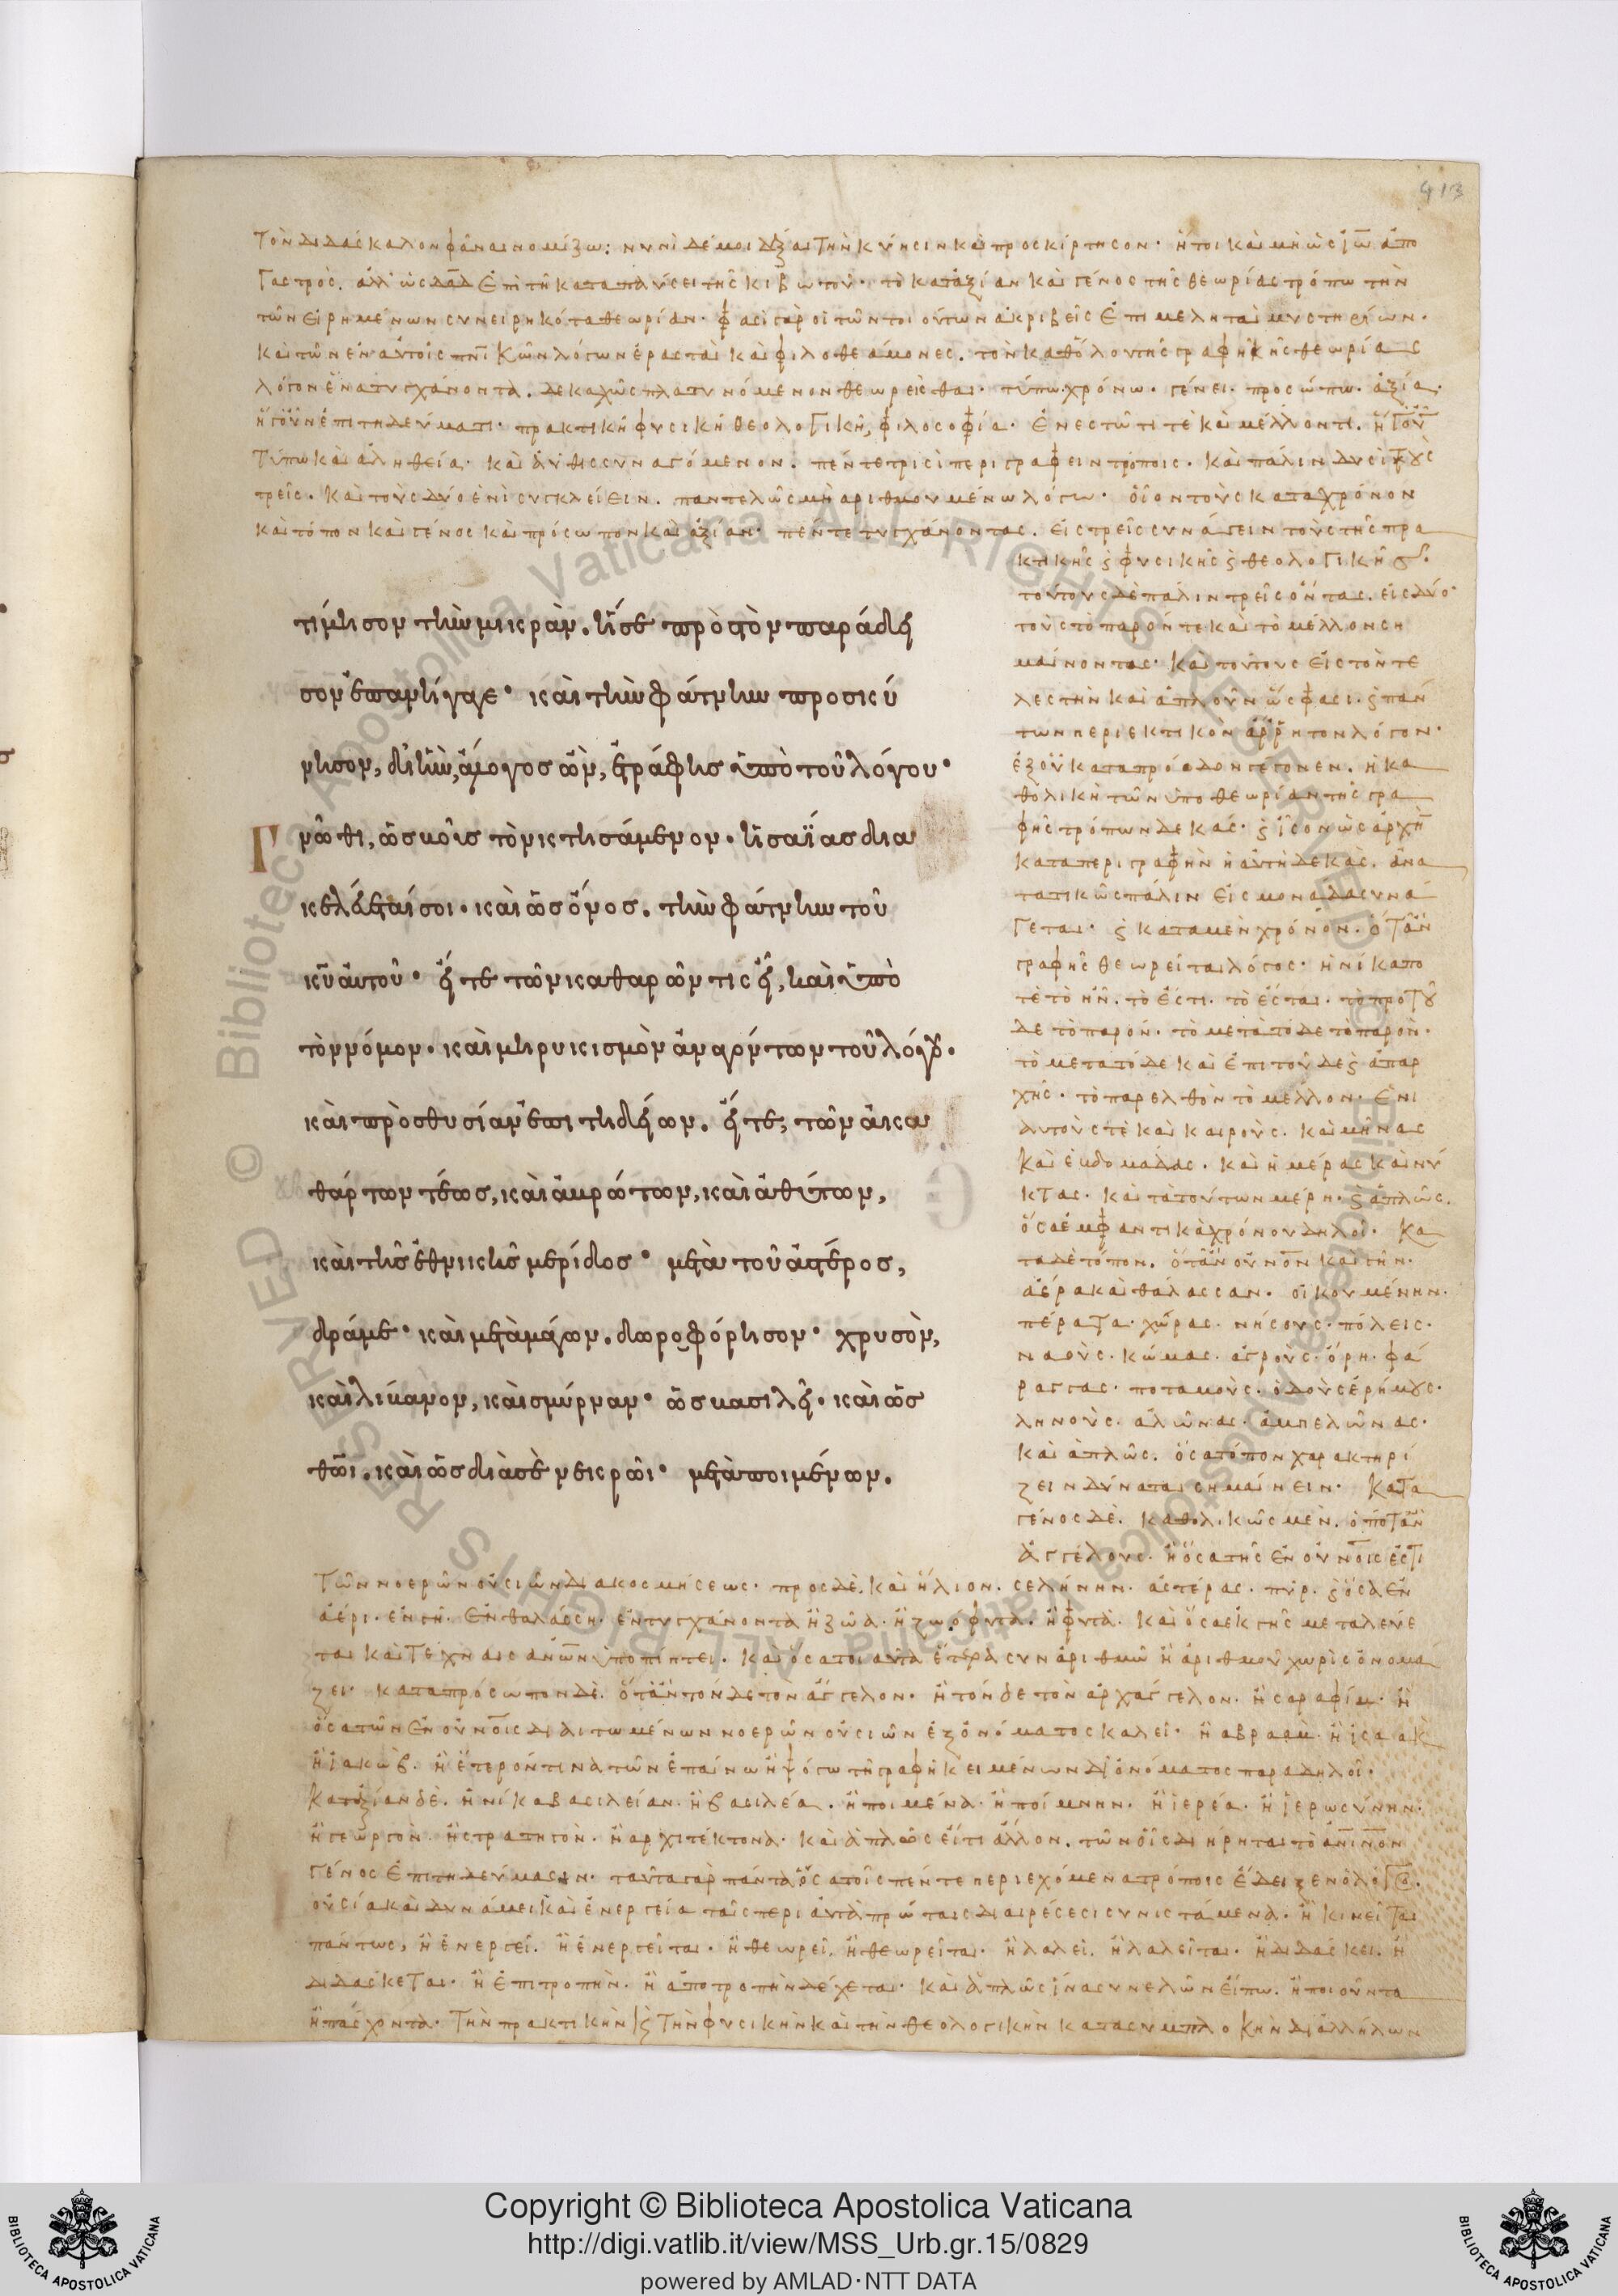 413
Τὸν διδάσκαλον φάναι νομίζω: νυνὶ δέ μοι δέξαι τὴν κύησιν καὶ προσκίρτησον· ἤτοι καὶ μὴ ὡς ἰω ἀπὸ
Γαστρός. ἀλλ' ὡς δαδ ἐπὶ τῆ καταπαύσει τῆς κιβωτοῦ· τὸ κατ' ἀξίαν καὶ γένος τῆς θεωρίας τρόπω τὴν
τῶν εἰρημένων συνειρηκότα θεωρίαν· φασὶ γὰρ οἱ τῶν τοιούτων ἀκριβεῖς ἐπιμεληταὶ μυστηρίων·
καὶ τῶν ἐν αὐτοῖς πνικῶν λόγων ἐρασταὶ καὶ φιλοθεάμονες. τὸν καθόλου τῆς γραφηκῆς θεωρίας
λόγον ἕνα τυγχάνοντα. δεκαχῶς πλατυνόμενον θεωρεῖσθαι· τόπω. χρόνω. γένει. προσώπω. ἀξία.
ἤγουν ἐπιτηδεύματι· πρακτικῆ φυσικῆ θεολογικῆ, φιλοσοφία· ἐνεστῶτί τε καὶ μέλλοντι. ἤγουν
Τύπω καὶ ἀληθεία· καὶ αὖθις συναγόμενον. πέντε τρισὶ περιγράφειν τρόποις. καὶ πάλιν δυσὶ τοὺς
τρεῖς. καὶ τοὺς δύο ἑνὶ συγκλείειν. παντελῶς μὴ ἀριθμουμένω λόγω· οἷον τοὺς κατὰ χρόνον
καὶ τόπον καὶ γένος καὶ πρόσωπον καὶ ἀξίαν· πέντε τυγχάνοντας. εἰς τρεῖς συνάγειν τοὺς τῆς πρα
κτικῆς ϛ φυσικῆς ϛ θεολογικῆς·
τούτους δὲ πάλιν τρεῖς ὄντας. εἰς δύο·
τοὺς τὸ παρόν τε καὶ τὸ μέλλον ση
μαίνοντας· καὶ τούτους εἰς τὸν τε
λεστὴν καὶ ἁπλοῦν ὥς φασι. ϛ πάν
των περιεκτικὸν ἄρρητον λόγον·
ἐξ οὗ κατὰ πρόοδον γέγονεν. ἡ κα
θολικὴ τῶν ὑπὸ θεωρίαν τῆς γρα
φῆς τρόπων δεκάς· ϛ εἰς ὃν ὡς ἀρχὴν
κατὰ περιγραφὴν ἡ αὐτὴ δεκὰς. ἀνα
τατικῶς πάλιν εἰς μονάδα συνά
Γεται· ϛ κατὰ μὲν χρόνον. ὁ τῶν
γραφῆς θεωρεῖται λόγος· ἡνίκα πο
τὲ τὸ ἦν. τὸ ἔστι. τὸ ἔσται. τὸ πρὸ τοῦ
δε τὸ παρόν. τὸ μετὰ τόδε τὸ παρὸν.
τὸ μετὰ τόδε καὶ ἐπὶ τοῦδε ϛ ἀπαρ
χῆς· τὸ παρελθὸν τὸ μέλλον· ἐνι
αυτούς τε καὶ καιροὺς. καὶ μῆνας
καὶ ἑβδομάδας. καὶ ἡμέρας καὶ νύ
κτας. καὶ τὰ τούτων μέρη. ϛ ἁπλῶς.
ὅσα ἐμφαντικὰ χρόνου δηλοῖ· κα
τὰ δὲ τόπον. ὅταν οὐνὸν καὶ γῆν.
ἀέρα καὶ θάλασσαν. οἰκουμένην.
πέρατα. χώρας. νήσους. πόλεις.
ναοὺς. κώμας. ἀγρούς. ὄρη. φά
ραγγας. ποταμοὺς. ὁδοὺς ἐρήμους.
ληνοὺς. ἁλῶνας. ἀμπελῶνας.
καὶ ἁπλῶς. ὅσα τόπον χαρακτηρί
ζειν δύναται σημαίνειν· κατὰ
γένος δὲ. καθολικῶς μὲν. ὁπόταν
ἀγγέλους. ἢ ὅσα τῆς ἐν οὐνοῖς ἐστι
Τῶν νοερῶν οὐσιῶν διακοσμήσεως· πρὸς δὲ. καὶ ἥλιον. σελήνην. ἀστέρας. πῦρ. ϛ ὅσα ἐν
ἀέρι. ἐν γῆ. ἐν θαλάσση. ἐντυγχάνοντα ἢ ζῶα. ἢ ζωόφυτα. ἢ φυτά. καὶ ὅσα ἐκ γῆς μεταλεύε
ται καὶ τέχναις ἀνων ὑποπίπτει. καὶ ὅσα τοιαῦτα ἕτερα σὺν ἀριθμῶ ἢ ἀριθμοῦ χωρὶς ὀνομά
ζει· κατὰ πρόσωπον δὲ. ὅταν τόνδε τὸν ἄγγελον. ἢ τόνδε τὸν ἀρχάγγελον. ἢ σεραφίμ. ἢ
ὅσα τῶν ἐν οὐνοῖς διαιτωμένων νοερῶν οὐσιῶν ἐξ ὀνόματος καλεῖ· ἢ ἀβραὰμ. ἢ ἰσαὰκ
ἢ ἰακώβ. ἢ ἕτερόν τινα τῶν ἐπαίνω ἢ ψόγω τῆ γραφῆ κειμένων δι' ὀνόματος παραδηλοῖ·
κατ' ἀξίαν δὲ. ἡνίκα βασιλείαν. ἢ βασιλέα. ἢ ποιμένα. ἢ ποίμνην. ἢ ἱερέα. ἢ ἱερωσύνην.
ἢ γεωργὸν. ἢ στρατηγὸν. ἢ ἀρχιτέκτονα. καὶ ἁπλῶς εἴτι ἄλλον. τῶν οἷς διήρηται τὸ ἀνινον
γένος ἐπιτηδεύμασιν· ταῦτα γὰρ πάντα ὅσα τοῖς πέντε περιεχόμενα τρόποις ἔδειξεν ὁ λόγος.
οὐσία καὶ δυνάμει καὶ ἐνεργεία ταῖς περὶ αὐτὰ πρώταις διαιρέσεσι συνιστάμενα. ἢ κινεῖται
πάντως, ἢ ἐνεργεῖ. ἢ ἐνεργεῖται. ἢ θεωρεῖ. ἢ θεωρεῖται. ἢ λαλεῖ. ἢ λαλεῖται. ἢ διδάσκει. ἢ
διδάσκεται. ἢ ἐπιτροπὴν. ἢ ἀποτροπὴν δέχεται. καὶ ἁπλῶς ἵνα συνελὼν εἴπω. ἢ ποιοῦντα
ἢ πάσχοντα· Τὴν πρακτικὴν ϛ Τὴν φυσικὴν καὶ τὴν θεολογικὴν κατὰ συμπλοκὴν δι' ἀλλήλων
τίμησον τὴν μικρὰν. ἥ σε πρὸς τὸν παράδει
σον ἐπανήγαγε· καὶ τὴν φάτνην προσκύ
νησον, δι' ἣν, ἄλογος ὢν, ἐτράφης ὑπὸ τοῦ λόγου·
Γνῶθι, ὡς βοῦς τὸν κτησάμενον. ἡσαΐας δια
κελεύεταί σοι. καὶ ὡς ὄνος. τὴν φάτνην τοῦ
κυ αὐτοῦ· εἴτε τῶν καθαρῶν τις εἶ, καὶ ὑπὸ
τὸν νόμον. καὶ μηρυκισμὸν ἀναγόντων τοῦ λόγου.
καὶ πρὸς θυσίαν ἐπιτηδείων. εἴτε, τῶν ἀκα
θάρτων τέως, καὶ ἀβρώτων, καὶ ἀθύτων,
καὶ τῆς ἐθνικῆς μερίδος· μετὰ τοῦ ἀστέρος,
δράμε· καὶ μετὰ μάγων. δωροφόρησον· χρυσὸν,
καὶ λίβανον, καὶ σμύρναν· ὡς βασιλεῖ. καὶ ὡς
θωι. καὶ ὡς διὰ σὲ νεκρῶι· μετὰ ποιμένων.
Copyright © Biblioteca Apostolica Vaticana
http://digi.vatlib.it/view/MSS_Urb.gr.15/0829
powered by AMLAD·NTT DATA
BIBLIOTECA APOSTOLICA VATICANA
BIBLIOTECA APOSTOLICA VATICANA
© Biblioteca Apostolica Vaticana ALL RIGHTS RESERVED